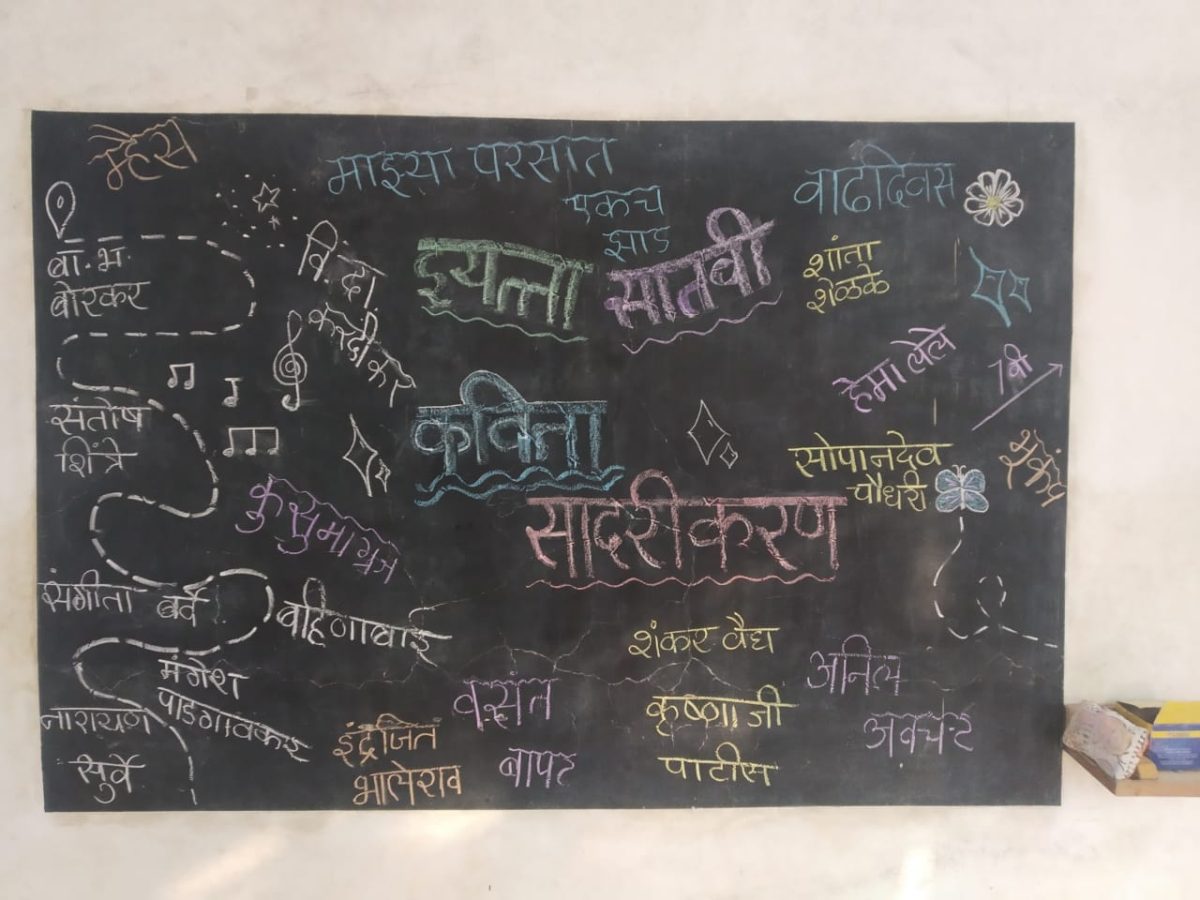 म्हैस
माझ्या परसात
एकच
झाड
वाढदिवस
बा.भ.
बोरकर
विंदा
करंदीकर
इयत्ता
सातवी
शांता
शेळके
हेमा लेले
7 वी
संतोष
शिंत्रे
कविता
सोपानदेव
चौधरी
भूकंप
कुसुमाग्रज
सादरीकरण
संगीता बर्वे
बहिणाबाई
शंकर वैद्य
मंगेश
पाडगावकर
अनिल
अवचट
नारायण
सुर्वे
वसंत
बापट
कृष्णाजी
पाटील
इंद्रजित
भालेराव